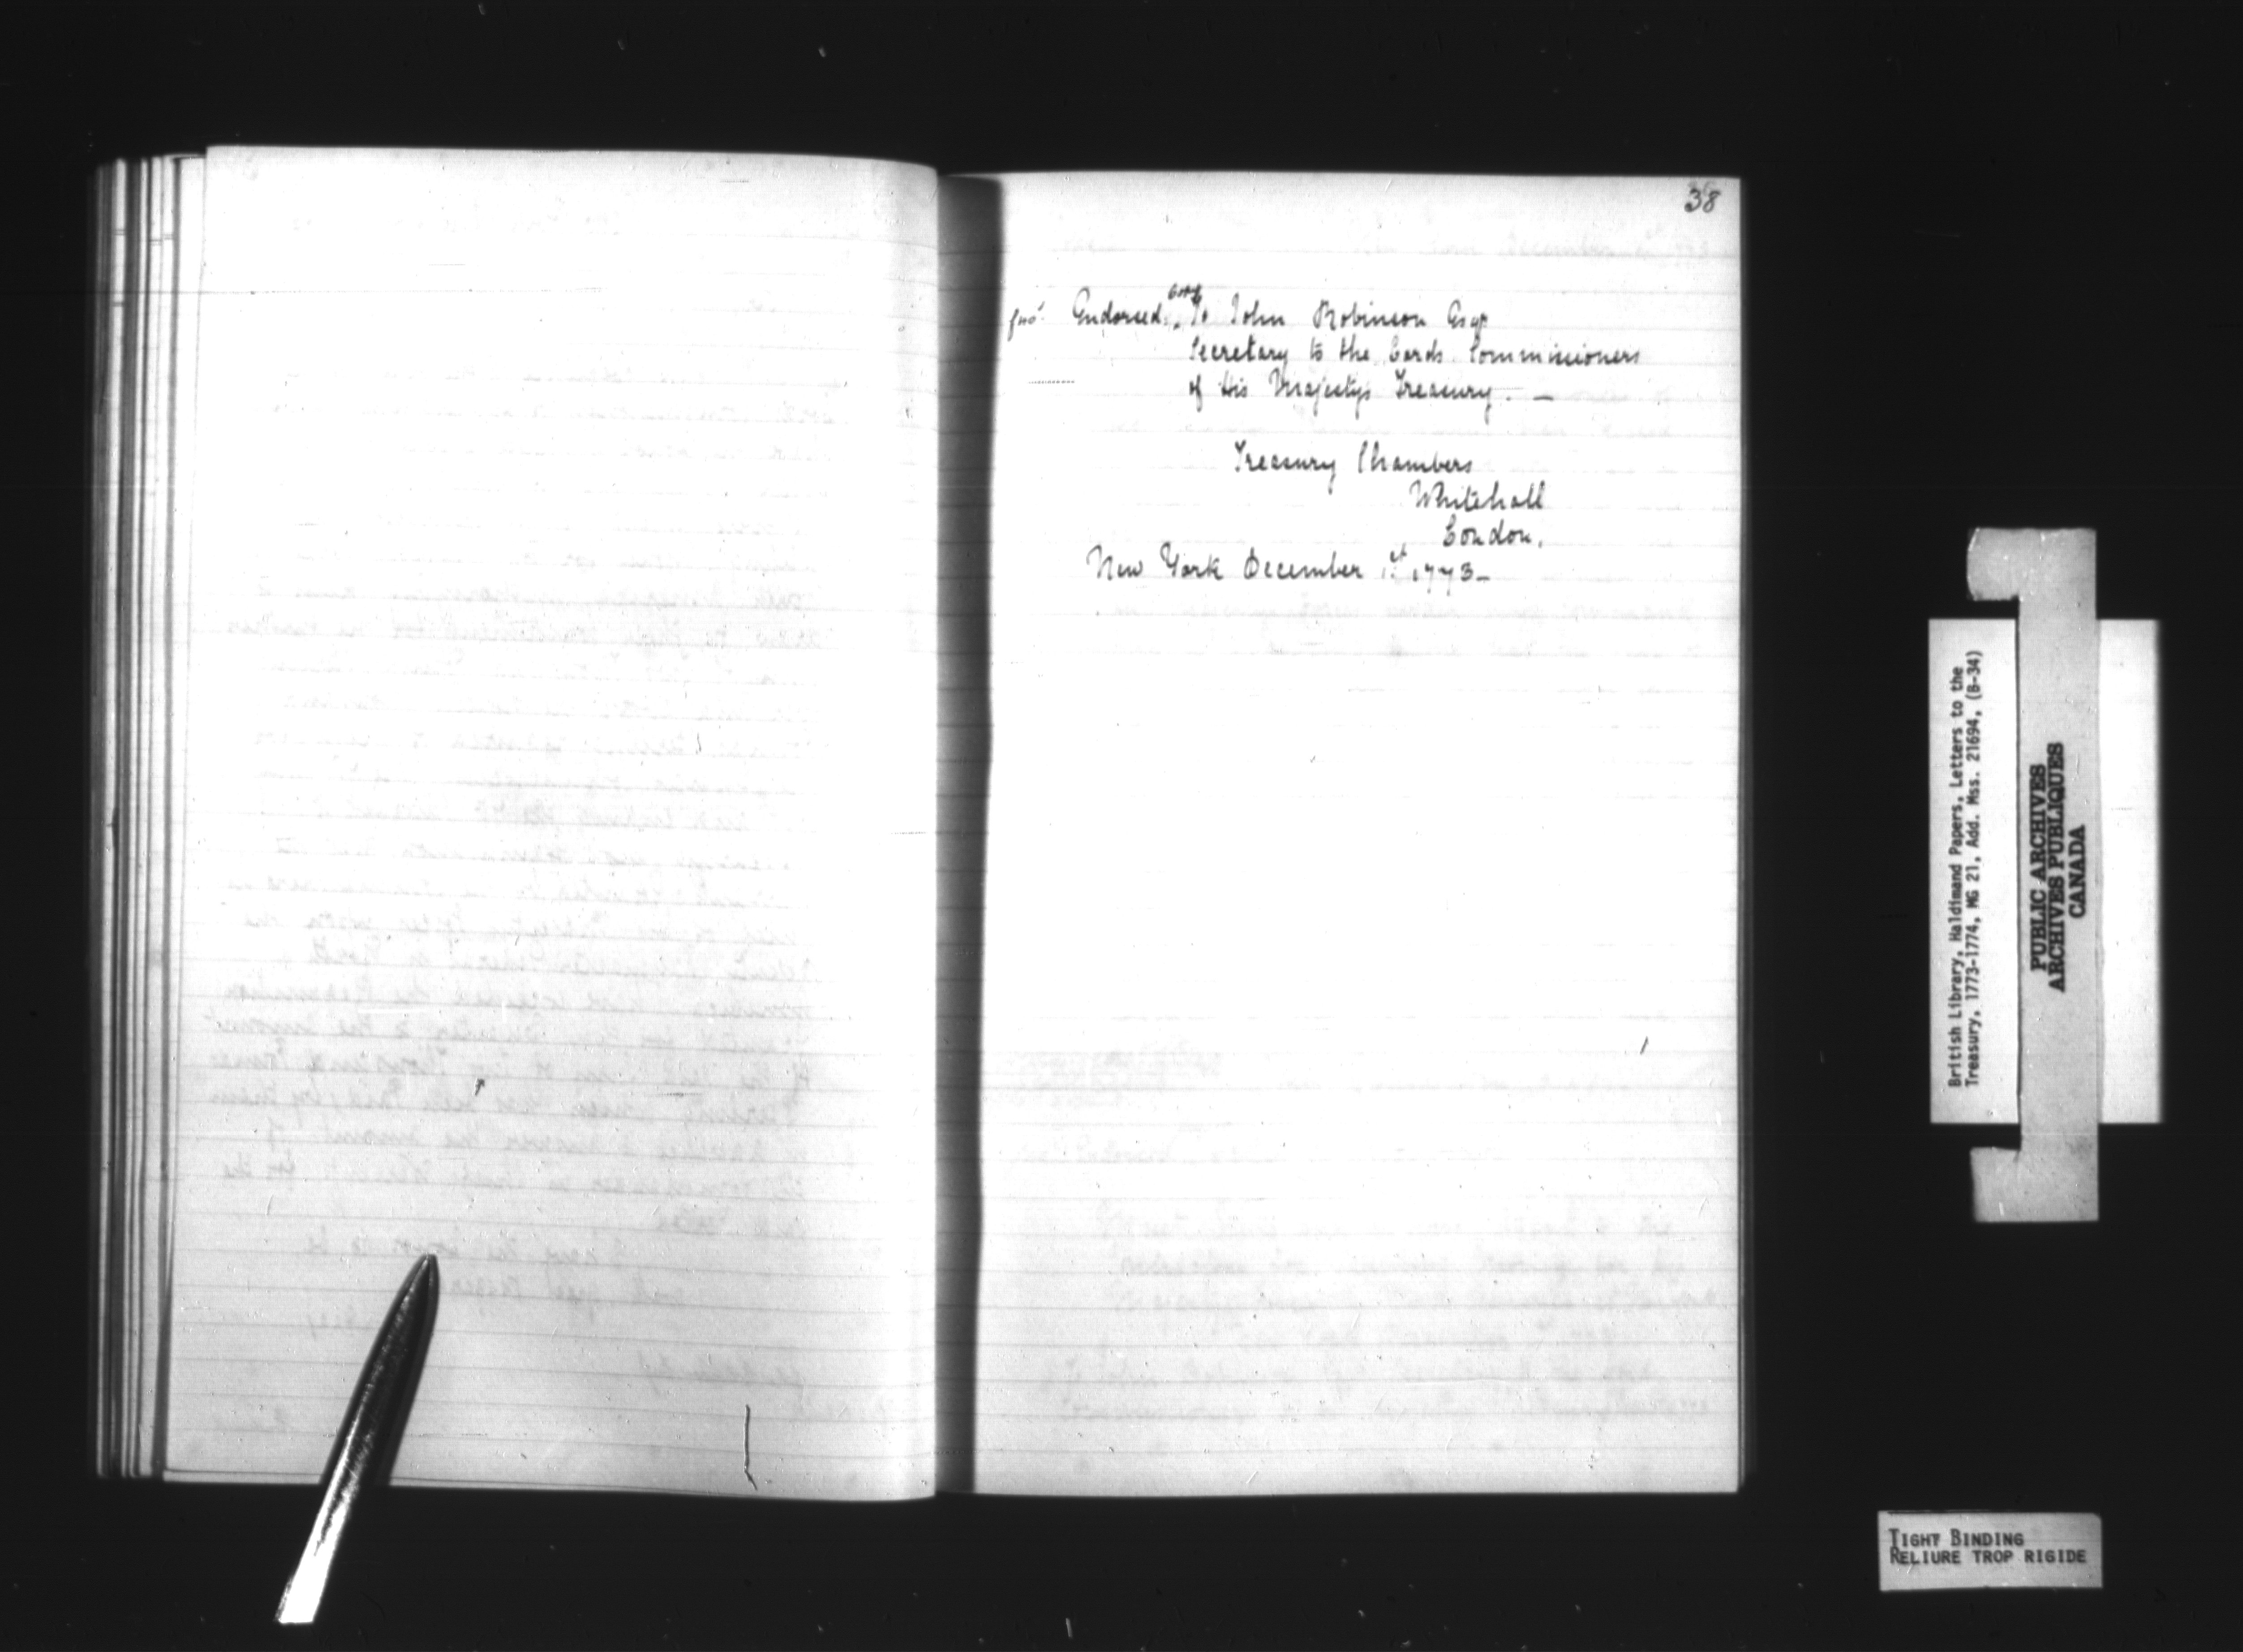 38
Endorsed. Copy To John Robinson Esqr
Secretary to the Lords Commissioners
of His Majestys Treasury. —
Treasury Chambers
Whitehall
London.
New York December 1st 1773—
British Library, Haldimand Papers, Letters to the
Treasury, 1773-1774, MG 21, Add. Mss. 21694, (B-34)
PUBLIC ARCHIVES
ARCHIVES PUBLIQUES
CANADA
TIGHT BINDING
RELIURE TROP RIGIDE